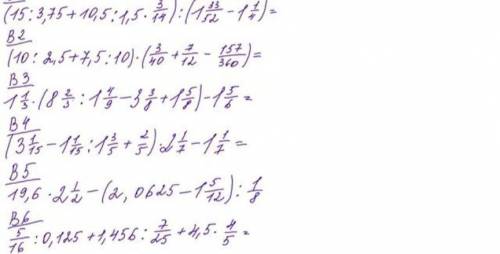 (15 : 3,75 + 10,5 : 1,5 · 3/14) : (1 33/52 − 1 1/4) =
В2
(10 : 2,5 + 7,5 : 10) · (3/40 + 7/12 − 157/360) =
В3
1 1/3 · (8 2/3 : 1 4/9 − 3 3/8 + 1 5/8) − 1 5/6 =
В4
(3 1/15 − 1 1/15 : 1 3/5 + 2/5) · 2 1/7 − 1 1/7 =
В5
19,6 · 2 1/2 − (2,0625 − 1 5/12) : 1/8
В6
5/16 : 0,125 + 1,456 : 7/25 + 4,5 · 4/5 =